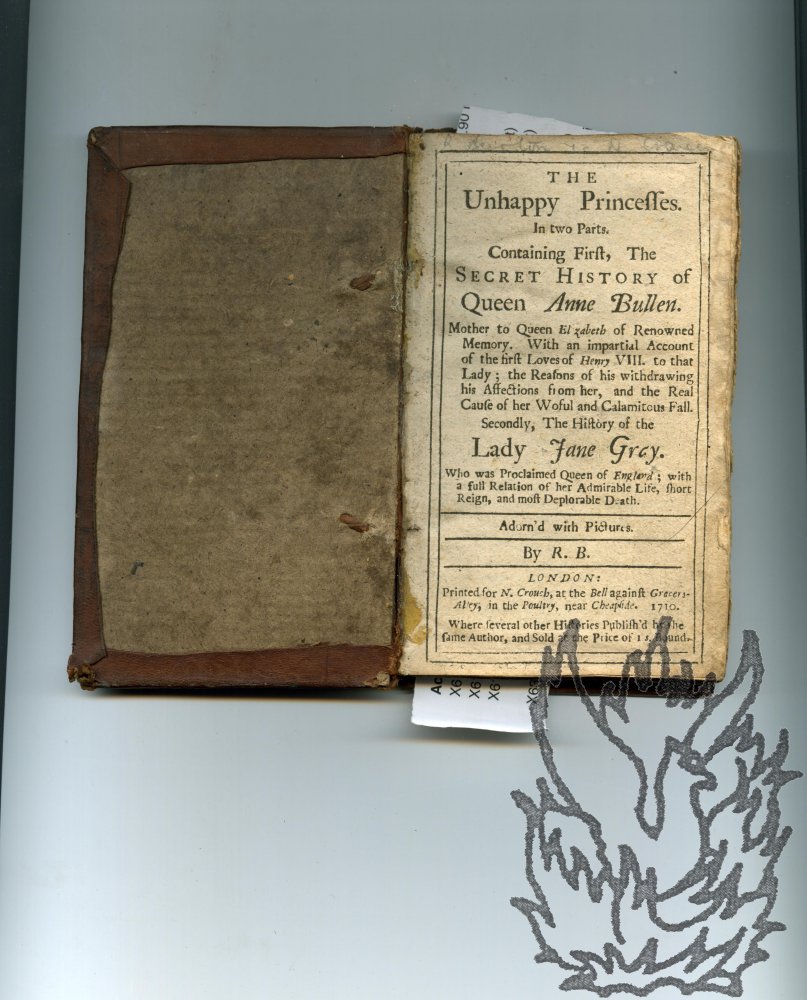 THE
Unhappy Princeſſes.
In two Parts.
Containing Firſt, The
SECRET HISTORY of
Queen Anne Bullen.
Mother to Queen El zabeth of Renowned
Memory. With an impartial Account
of the firſt Loves of Henry VIII. to that
Lady; the Reaſons of his withdrawing
his Affections from her, and the Real
Cauſe of her Woful and Calamitous Fall.
Secondly, The Hiſtory of the
Lady Jane Gray.
Who was Proclaimed Queen of England; with
a full Relation of her Admirable Life, ſhort
Reign, and moſt Deplorable Death.
Adorn'd with Pictures.
By R. B.
LONDON:
Printed for N. Crouch, at the Bell againſt Grocers-
Alley, in the Poultry, near Cheapſide. 1710.
Where ſeveral other Hiſtories Publiſh'd by the
ſame Author, and Sold at the Price of 1 s. Bound.